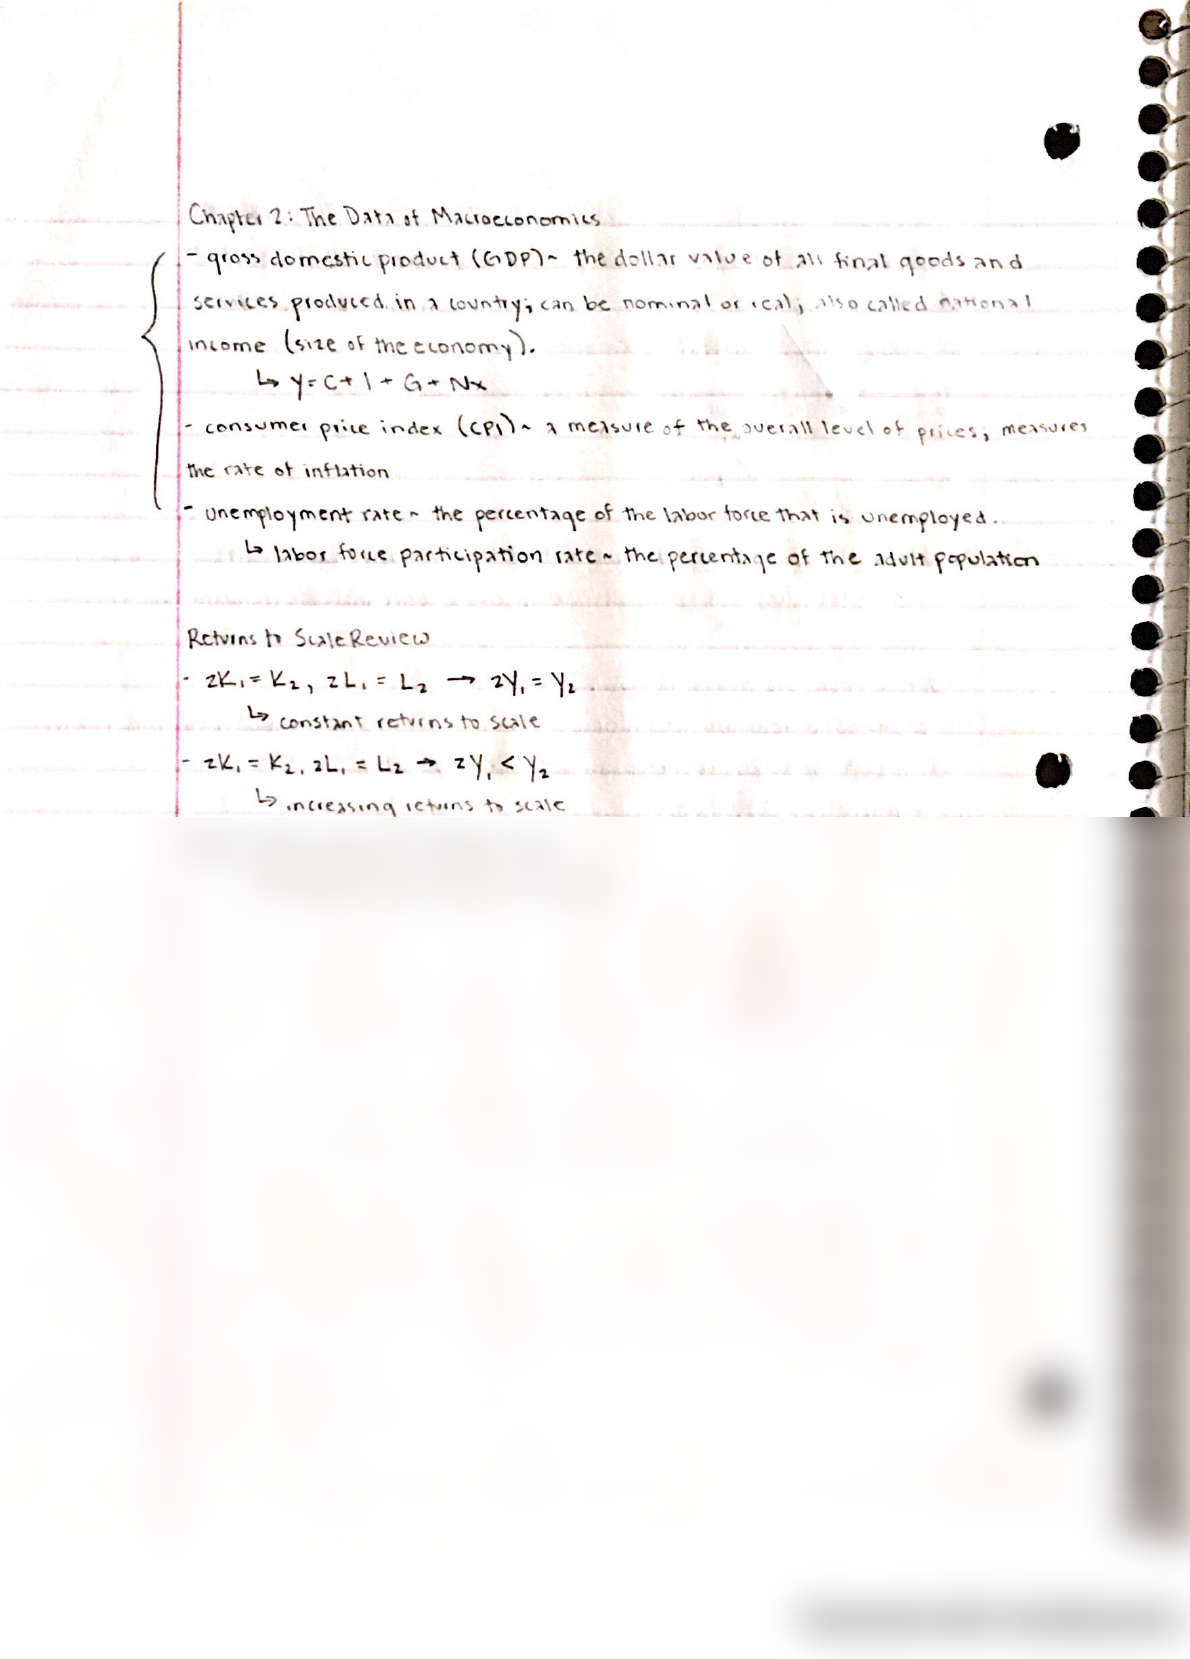 Chapter 2: The Data of Macroeconomics
- gross domestic product (GDP) ~ the dollar value of all final goods and
services produced in a country; can be nominal or real; also called national
income (size of the economy).
↳ Y = C + I + G + Nx
- consumer price index (CPI) ~ a measure of the overall level of prices; measures
the rate of inflation
- unemployment rate ~ the percentage of the labor force that is unemployed.
↳ labor force participation rate ~ the percentage of the adult population
Returns to Scale Review
- zK₁ = K₂, zL₁ = L₂ → zY₁ = Y₂
↳ constant returns to scale
- zK₁ = K₂, zL₁ = L₂ → zY₁ < Y₂
↳ increasing returns to scale